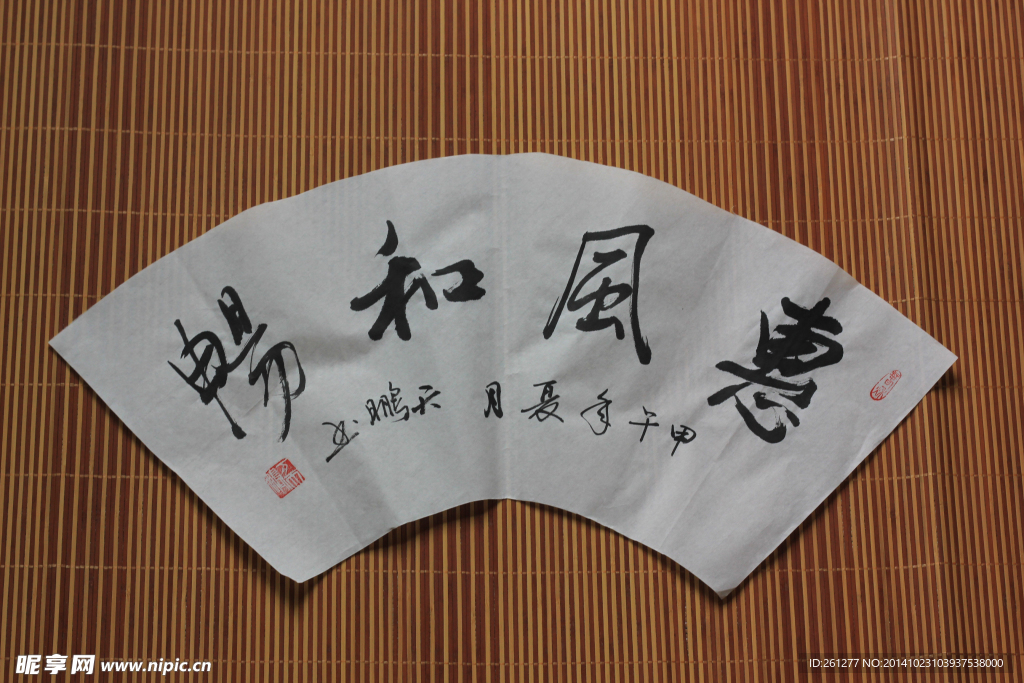 惠風和暢
甲午年夏月 天鵬书
昵享网 www.nipic.cn
ID:261277 NO:20141023103937538000